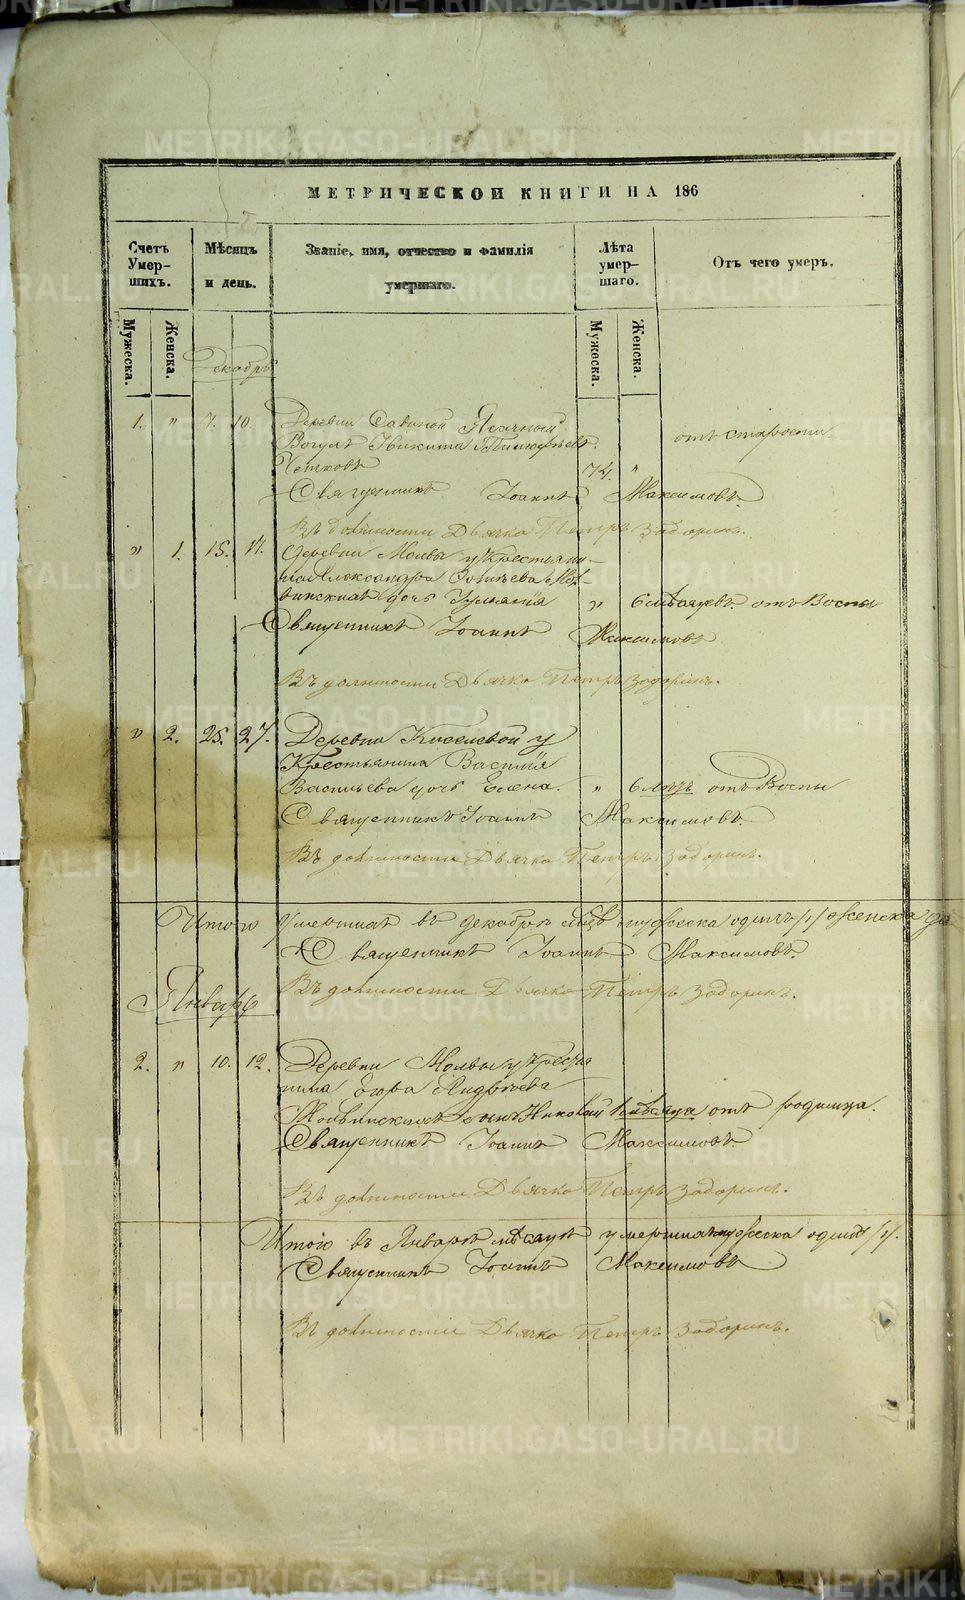 METRIKI.GASO-URAL.RU
МЕТРИЧЕСКОЙ КНИГИ НА 186
Счетъ Умер-шихъ.
Мѣсяцъ и день.
Званіе, имя, отчество и фамилія умершаго.
Лѣта умер-шаго.
Отъ чего умеръ.
Мужеска.
Женска.
Мужеска.
Женска.
Декабрь
1. " 7. 10. Деревни Савиной Ясачный
Вогулъ Никита Тимофѣевъ
74. " отъ старости.
Священникъ Іоаннъ Максимовъ
Въ должности Дьячка Петръ Задоринъ.
" 1. 15. 17. Деревни Молвы у Крестьяни-
на Александра
дочь " 6 мѣсяцевъ. отъ Воспы
Священникъ Іоаннъ Максимовъ
Въ должности Дьячка Петръ Задоринъ.
" 2. 25. 27. Деревни Кошелевой у
Крестьянина Василія
Васильева дочь Елена. " 6 мѣс. отъ Воспы
Священникъ Іоаннъ Максимовъ.
Въ должности Дьячка Петръ Задоринъ.
Итого умершихъ въ Декабрѣ мцѣ мужеска одинъ /1/ женска два
Священникъ Іоаннъ Максимовъ.
Въ должности Дьячка Петръ Задоринъ.
Январь
2. " 10. 12. Деревни Молвы у Крестья
нина Егора Андрѣева
Молвинскихъ сынъ Николай мѣсяца отъ родимца.
Священникъ Іоаннъ Максимовъ.
Въ должности Дьячка Петръ Задоринъ.
Итого въ Январѣ мѣсяцѣ умершихъ мужеска одинъ /1/.
Священникъ Іоаннъ Максимовъ
Въ должности Дьячка Петръ Задоринъ.